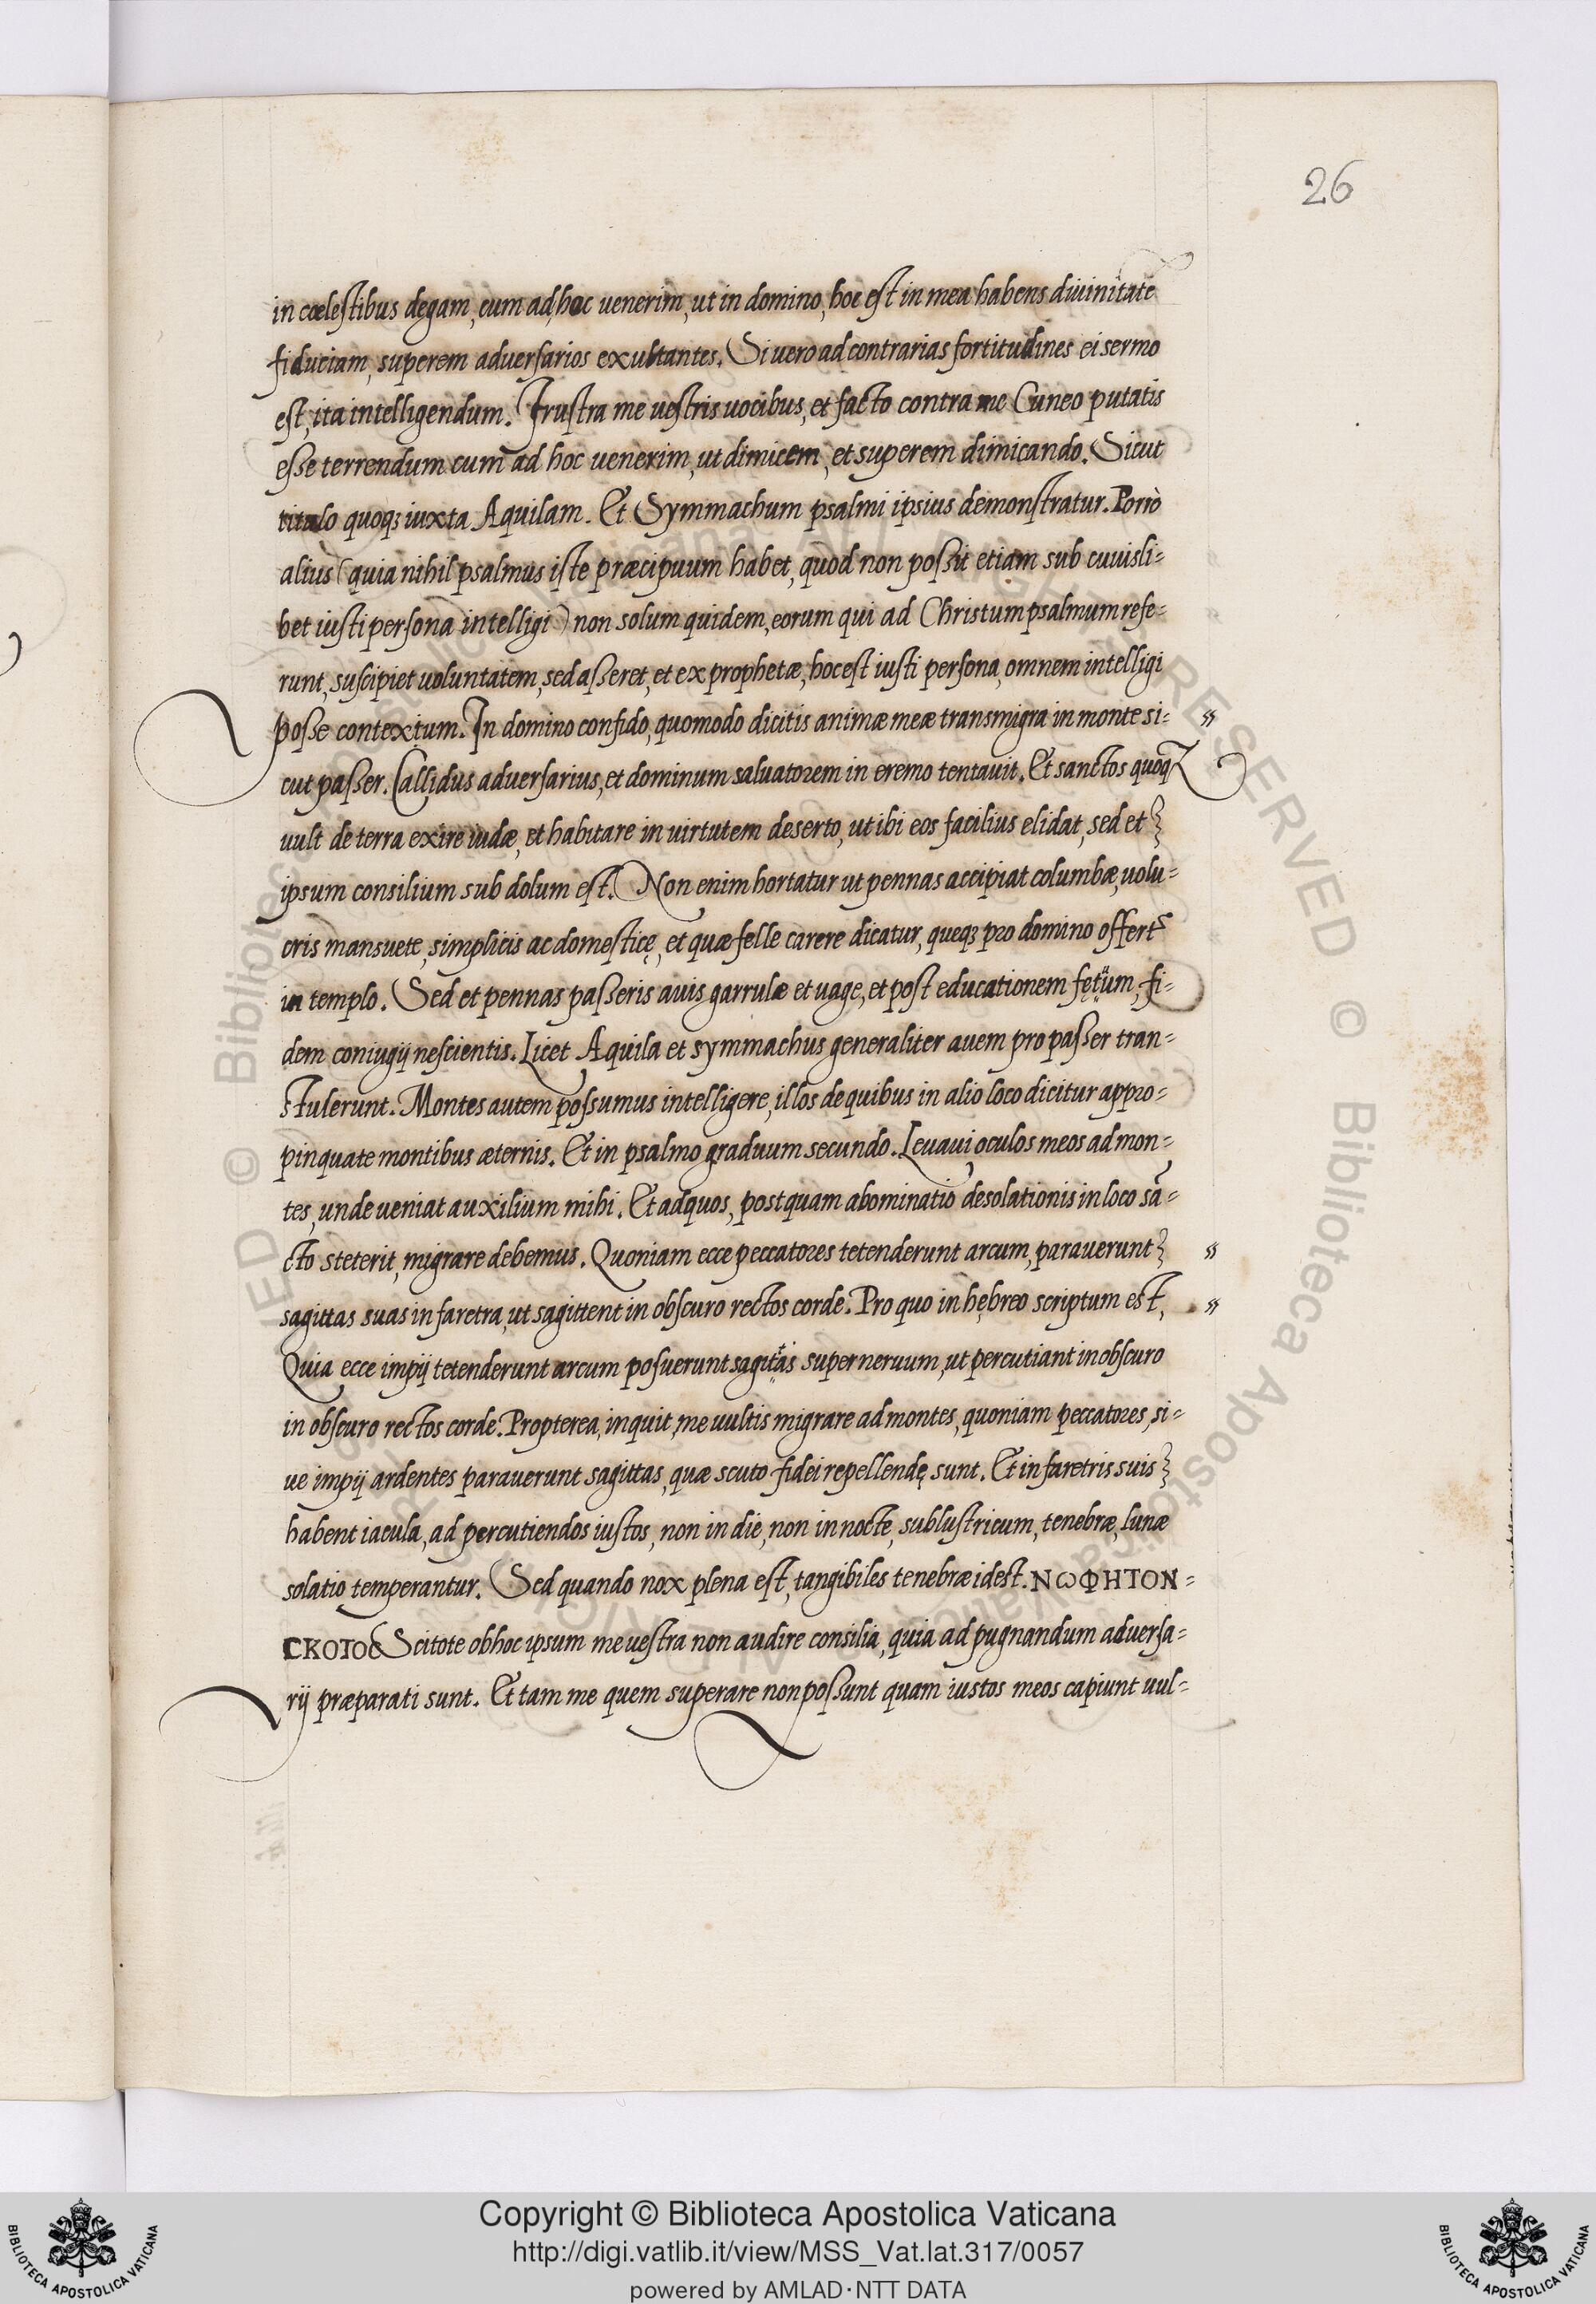 26
in cœlestibus degam, cum ad hoc uenerim, ut in domino, hoc est in mea habens diuinitate
fiduciam, superem aduersarios exultantes. Si uero ad contrarias fortitudines ei sermo
est, ita intelligendum. Frustra me uestris uocibus, et facto contra me Cuneo putatis
esse terrendum cum ad hoc uenerim, ut dimicem, et superem dimicando. Sicut
titulo quoq; iuxta Aquilam. Et Symmachum psalmi ipsius demonstratur. Porrò
alius (quia nihil psalmus iste præcipuum habet, quod non possit etiam sub cuiusli=
bet iusti persona intelligi) non solum quidem, eorum qui ad Christum psalmum refe=
runt, suscipiet uoluntatem, sed asseret, et ex prophetæ, hoc est iusti persona, omnem intelligi
posse contextum. In domino confido, quomodo dicitis animæ meæ transmigra in monte si= "
cut passer. Callidus aduersarius, et dominum saluatorem in eremo tentauit. Et sanctos quoq;
uult de terra exire iudæ, et habitare in uirtutem deserto, ut ibi eos facilius elidat, sed et
ipsum consilium sub dolum est. Non enim hortatur ut pennas accipiat columbæ, uolu=
cris mansuete, simplicis ac domesticę, et quæ felle carere dicatur, queq; pro domino offert
in templo. Sed et pennas passeris auis garrulæ et uage, et post educationem fętuum, fi=
dem coniugij nescientis. Licet Aquila et symmachus generaliter auem pro passer tran=
stulerunt. Montes autem possumus intelligere, illos de quibus in alio loco dicitur appro=
pinquate montibus æternis. Et in psalmo graduum secundo. Leuaui oculos meos ad mon=
tes, unde ueniat auxilium mihi. Et ad quos, postquam abominatio desolationis in loco sā=
cto steterit, migrare debemus. Quoniam ecce peccatores tetenderunt arcum, parauerunt "
sagittas suas in faretra, ut sagittent in obscuro rectos corde. Pro quo in hębreo scriptum est, "
Quia ecce impij tetenderunt arcum posuerunt sagittas super neruum, ut percutiant in obscuro
in obscuro rectos corde. Propterea, inquit, me uultis migrare ad montes, quoniam peccatores, si=
ue impij ardentes parauerunt sagittas, quæ scuto fidei repellendę sunt. Et in faretris suis
habent iacula, ad percutiendos iustos, non in die, non in nocte, sublustricum, tenebræ, lunæ
solatio temperantur. Sed quando nox plena est, tangibiles tenebræ idest. ΝωΦΗΤΟΝ=
CΚΟΤΟC Scitote ob hoc ipsum me uestra non audire consilia, quia ad pugnandum aduersa=
rij præparati sunt. Et tam me quem superare non possunt quam iustos meos capiunt uul=
Copyright © Biblioteca Apostolica Vaticana
http://digi.vatlib.it/view/MSS_Vat.lat.317/0057
powered by AMLAD·NTT DATA
BIBLIOTECA APOSTOLICA VATICANA
BIBLIOTECA APOSTOLICA VATICANA